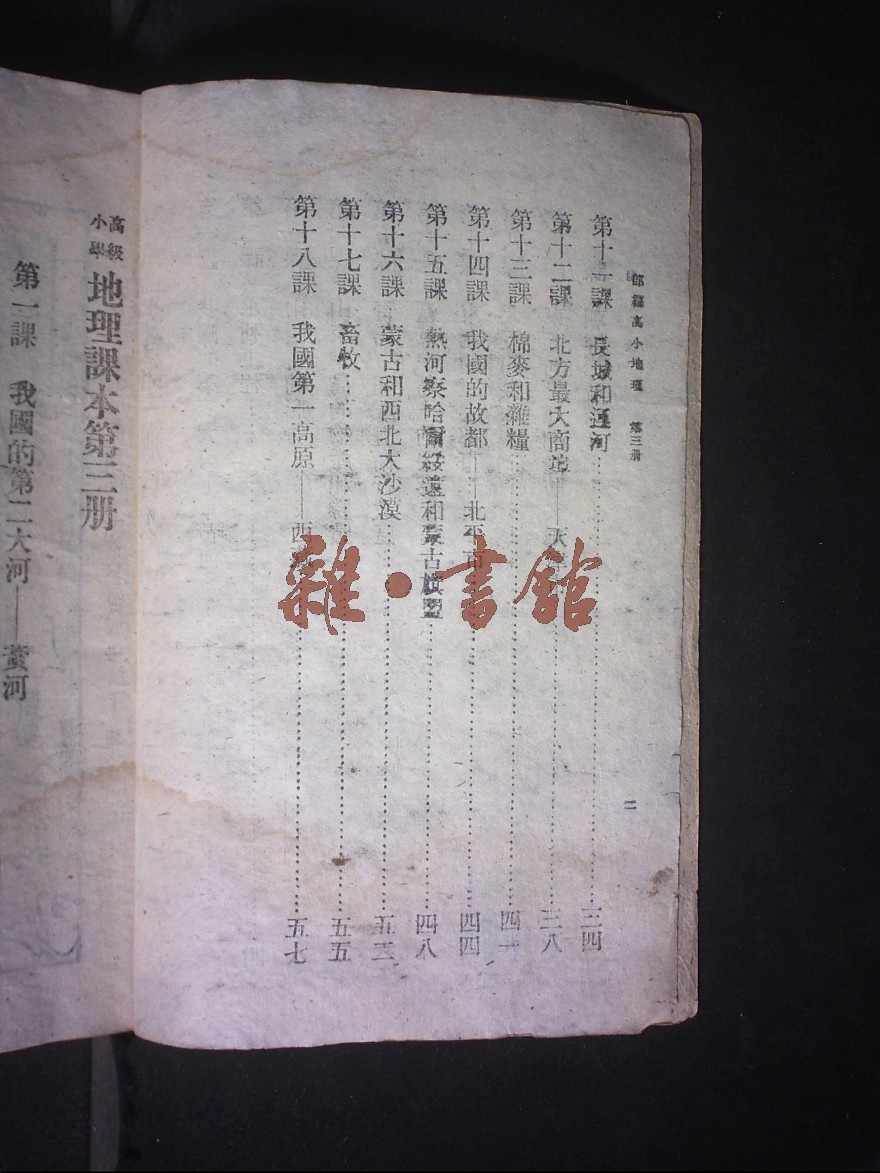 部編高小地理　第三册
二
第十一課　長城和運河……三四
第十二課　北方最大商埠——天津……三八
第十三課　棉麥和雜糧……四一
第十四課　我國的故都——北平市……四四
第十五課　熱河察哈爾綏遠和蒙古旗盟……四八
第十六課　蒙古和西北大沙漠……五三
第十七課　畜牧……五五
第十八課　我國第一高原——西藏……五七
高級小學地理課本第三册
第一課　我國的第二大河——黃河
雜·書館